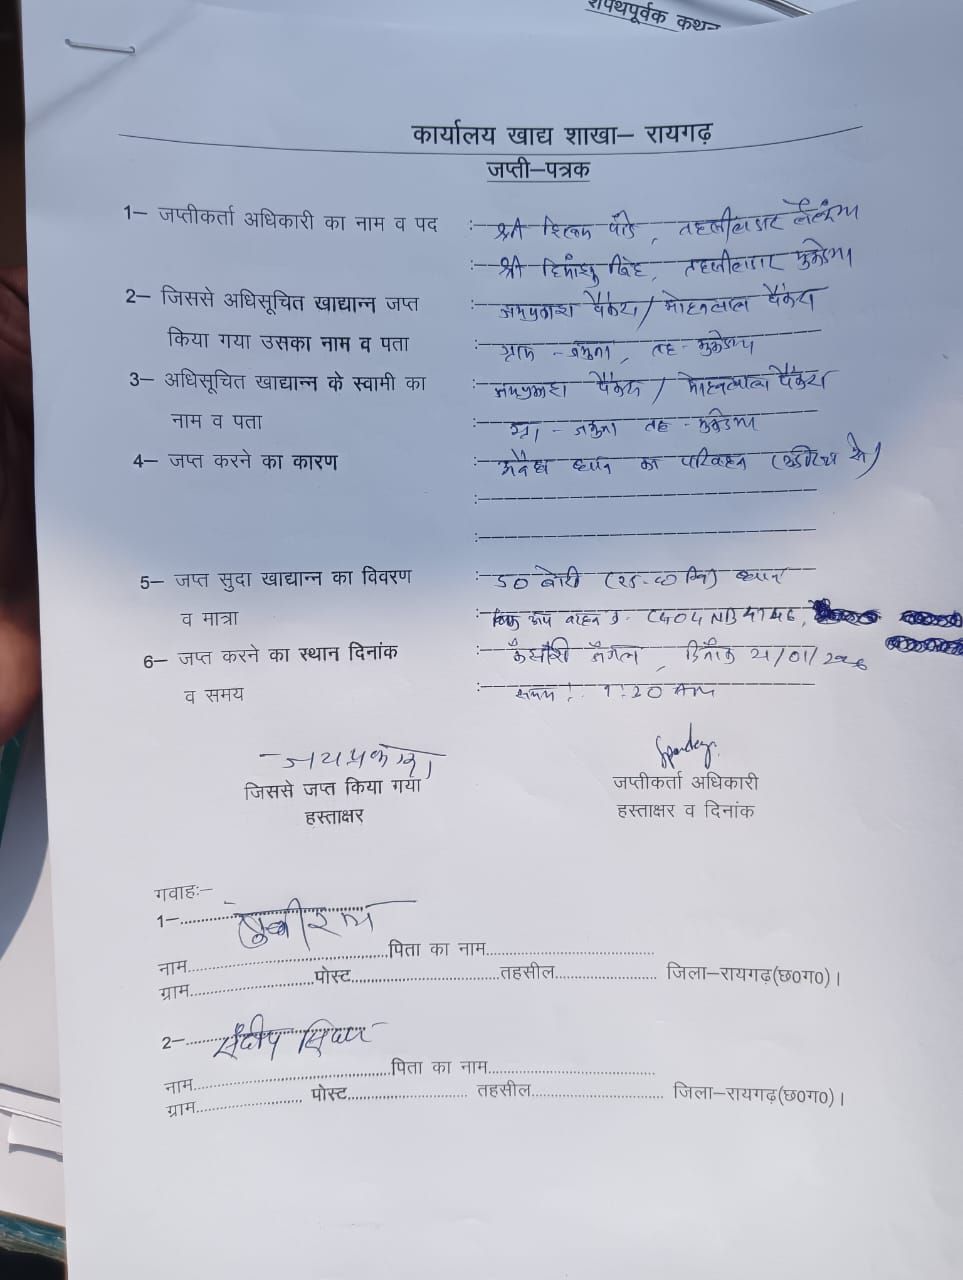 शपथपूर्वक कथन
कार्यालय खाद्य शाखा– रायगढ़
जप्ती–पत्रक
1– जप्तीकर्ता अधिकारी का नाम व पद :- श्री पांडे, तहसीलदार
:- श्री सिंह, तहसीलदार
2– जिससे अधिसूचित खाद्यान्न जप्त :- जयप्रकाश पैंकरा / मोहनलाल पैंकरा
किया गया उसका नाम व पता ग्राम - जमुना, तह -
3– अधिसूचित खाद्यान्न के स्वामी का :- जयप्रकाश पैंकरा / मोहनलाल पैंकरा
नाम व पता ग्रा - जमुना तह -
4– जप्त करने का कारण :- अवैध धान का परिवहन
:-
:-
5– जप्त सुदा खाद्यान्न का विवरण :- 50 बोरी धान
व मात्रा वाहन
6– जप्त करने का स्थान दिनांक :- जंगल, दिनांक 21/01/2026
व समय :- समय : 1:20 AM
जयप्रकाश
जिससे जप्त किया गया जप्तीकर्ता अधिकारी
हस्ताक्षर हस्ताक्षर व दिनांक
गवाहः–
1–
नाम पिता का नाम
ग्राम पोस्ट तहसील जिला–रायगढ़(छ0ग0)।
2– संदीप सिदार
नाम पिता का नाम
ग्राम पोस्ट तहसील जिला–रायगढ़(छ0ग0)।